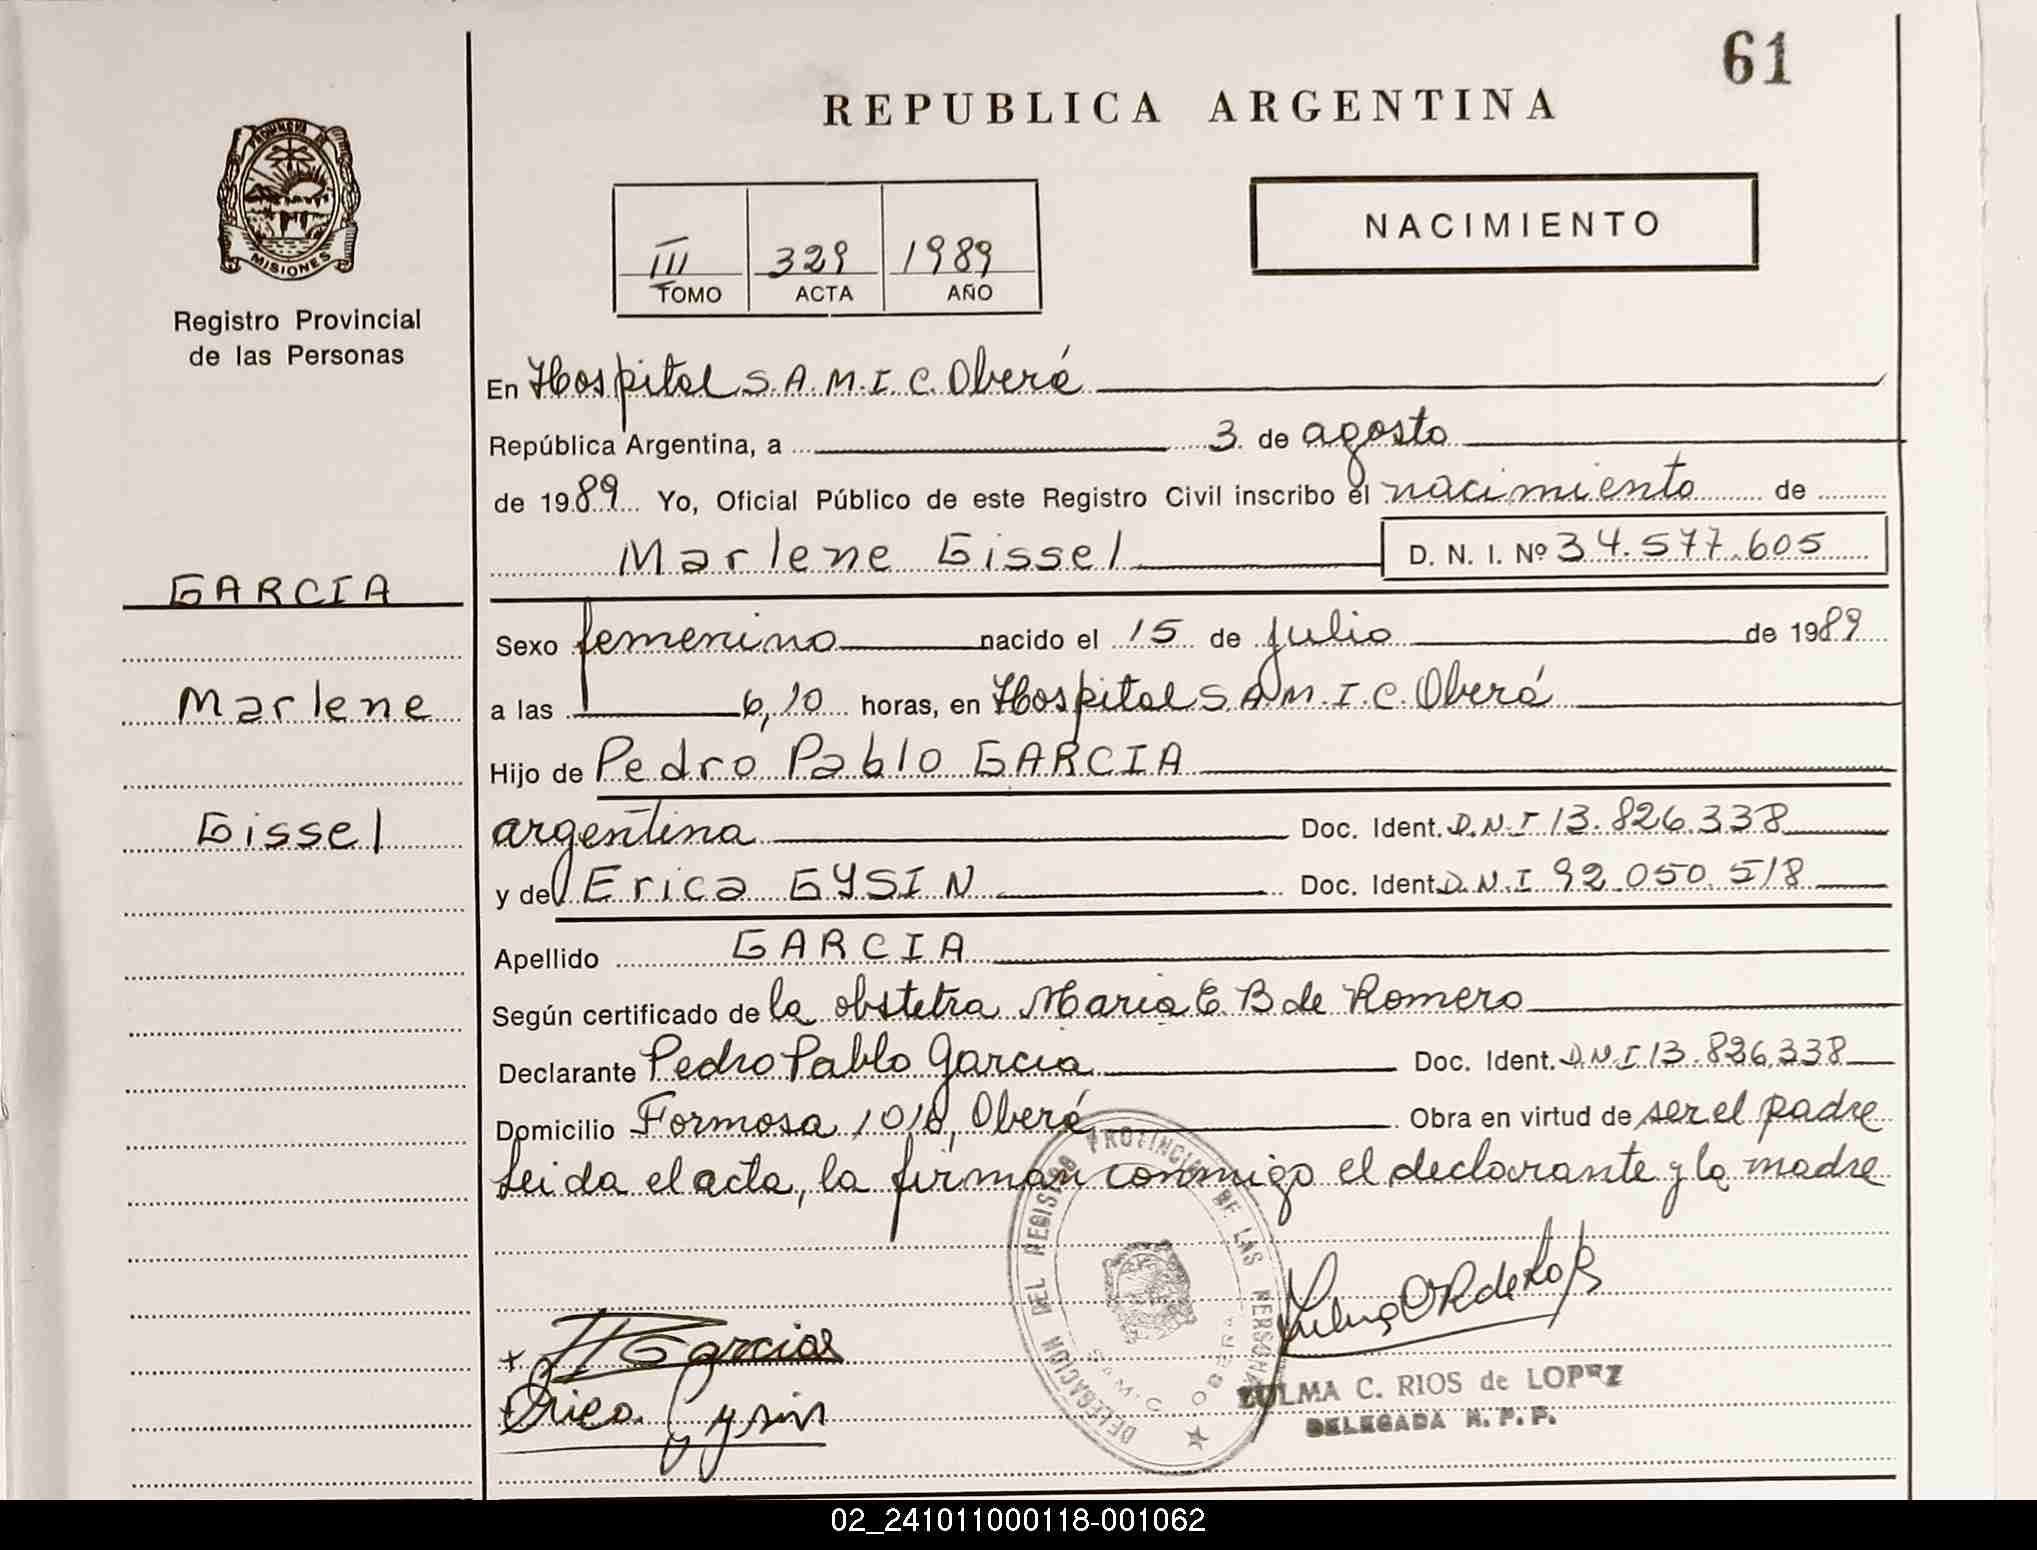 61
REPUBLICA ARGENTINA
PROVINCIA DE
MISIONES
Registro Provincial
de las Personas
NACIMIENTO
III 329 1989
TOMO ACTA AÑO
En Hospital S.A.M.I.C. Oberá
República Argentina, a 3 de agosto
de 1989 Yo, Oficial Público de este Registro Civil inscribo el nacimiento de
Marlene Gissel D. N. I. Nº 34.577.605
GARCIA
Marlene
Gissel
Sexo femenino nacido el 15 de julio de 1989
a las 6,10 horas, en Hospital S.A.M.I.C. Oberá
Hijo de Pedro Pablo GARCIA
argentina Doc. Ident. D.N.I 13.826.338
y de Erica GYSIN Doc. Ident. D.N.I 92.050.518
Apellido GARCIA
Según certificado de la obstetra Maria E. B de Romero
Declarante Pedro Pablo Garcia Doc. Ident. D.N.I 13.826.338
Domicilio Formosa 1016, Oberá Obra en virtud de ser el padre
Leida el acta, la firman conmigo el declarante y la madre
DELEGACION DEL REGISTRO PROVINCIAL DE LAS PERSONAS
S.A.M.I.C. OBERA
Garcia
Erica Gysin
ZULMA C. RIOS de LOPEZ
DELEGADA R. P. P.
02_241011000118-001062